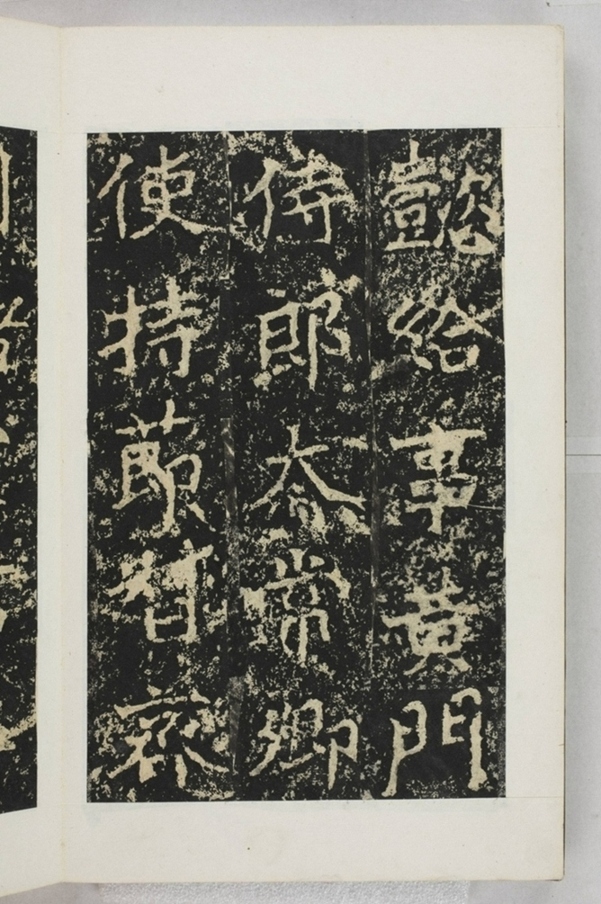 懿給事黃門
侍郎太常卿
使持莭督齊